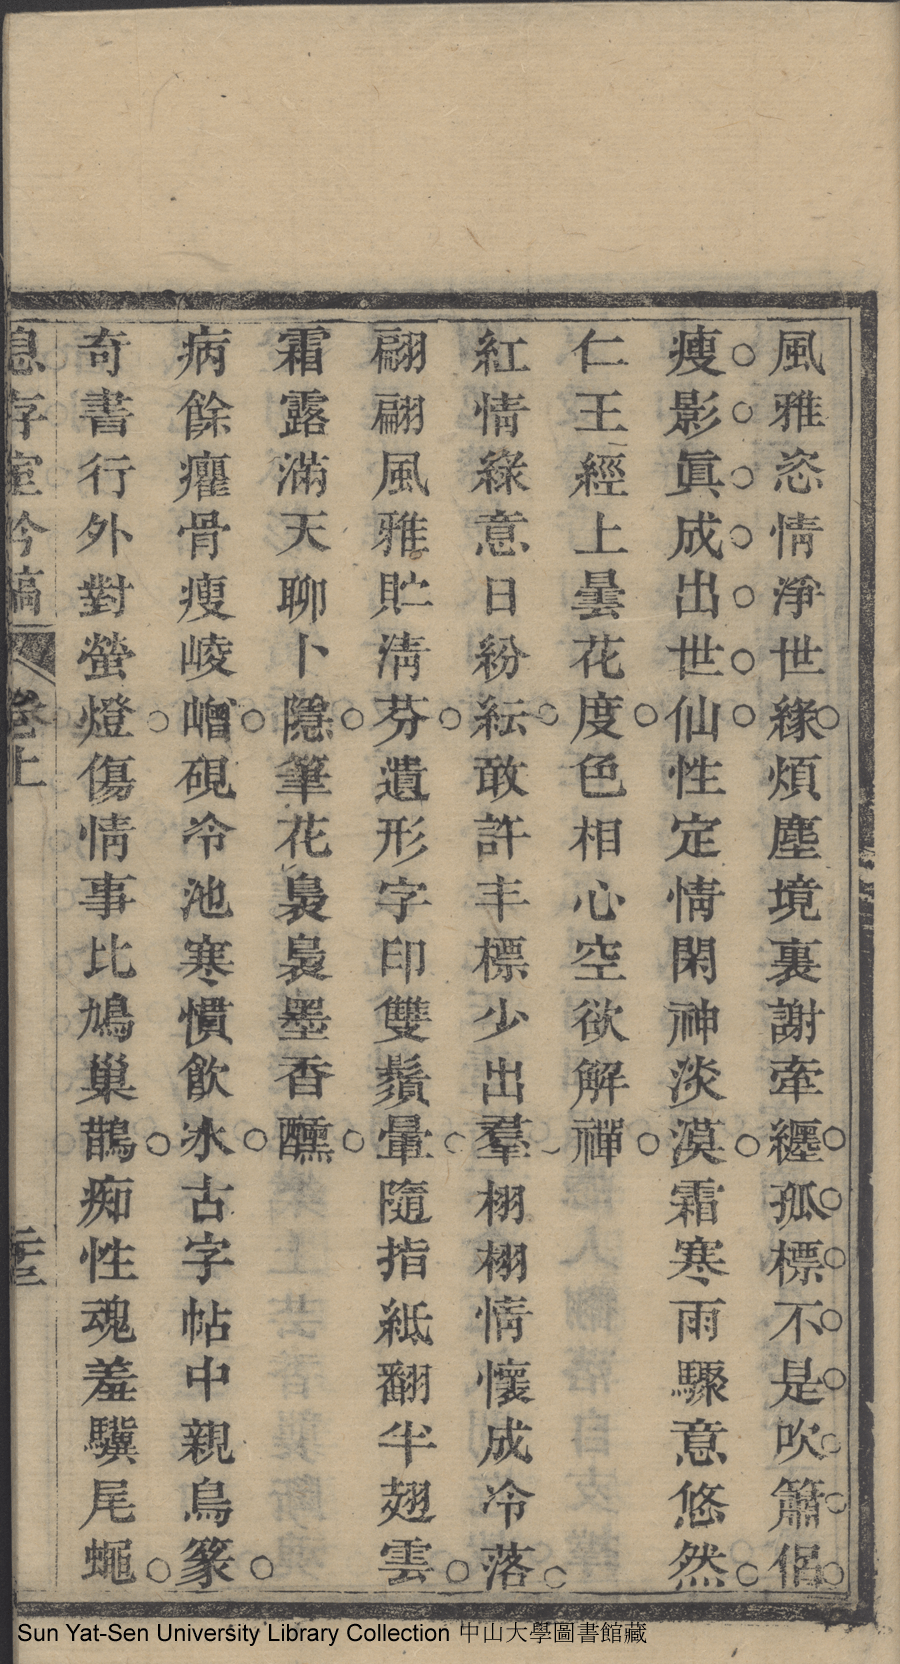 風雅恣情淨世緣煩塵境裏謝牽纏孤標不是吹簫侶
瘦影眞成出世仙性定情閑神淡漠霜寒雨驟意悠然
仁王經上曇花度色相心空欲解禪
紅情綠意日紛紜敢許丰標少出羣栩栩情懷成冷落
翩翩風雅貯清芬遺形字印雙鬚暈隨指紙翻半翅雲
霜露滿天聊卜隱筆花裊裊墨香醺
病餘癯骨瘦崚嶒硯冷池寒慣飲冰古字帖中親鳥篆
奇書行外對螢燈傷情事比鳩巢鵲痴性魂羞驥尾蠅
息存室吟稿 卷上 二十三
Sun Yat-Sen University Library Collection 中山大學圖書館藏